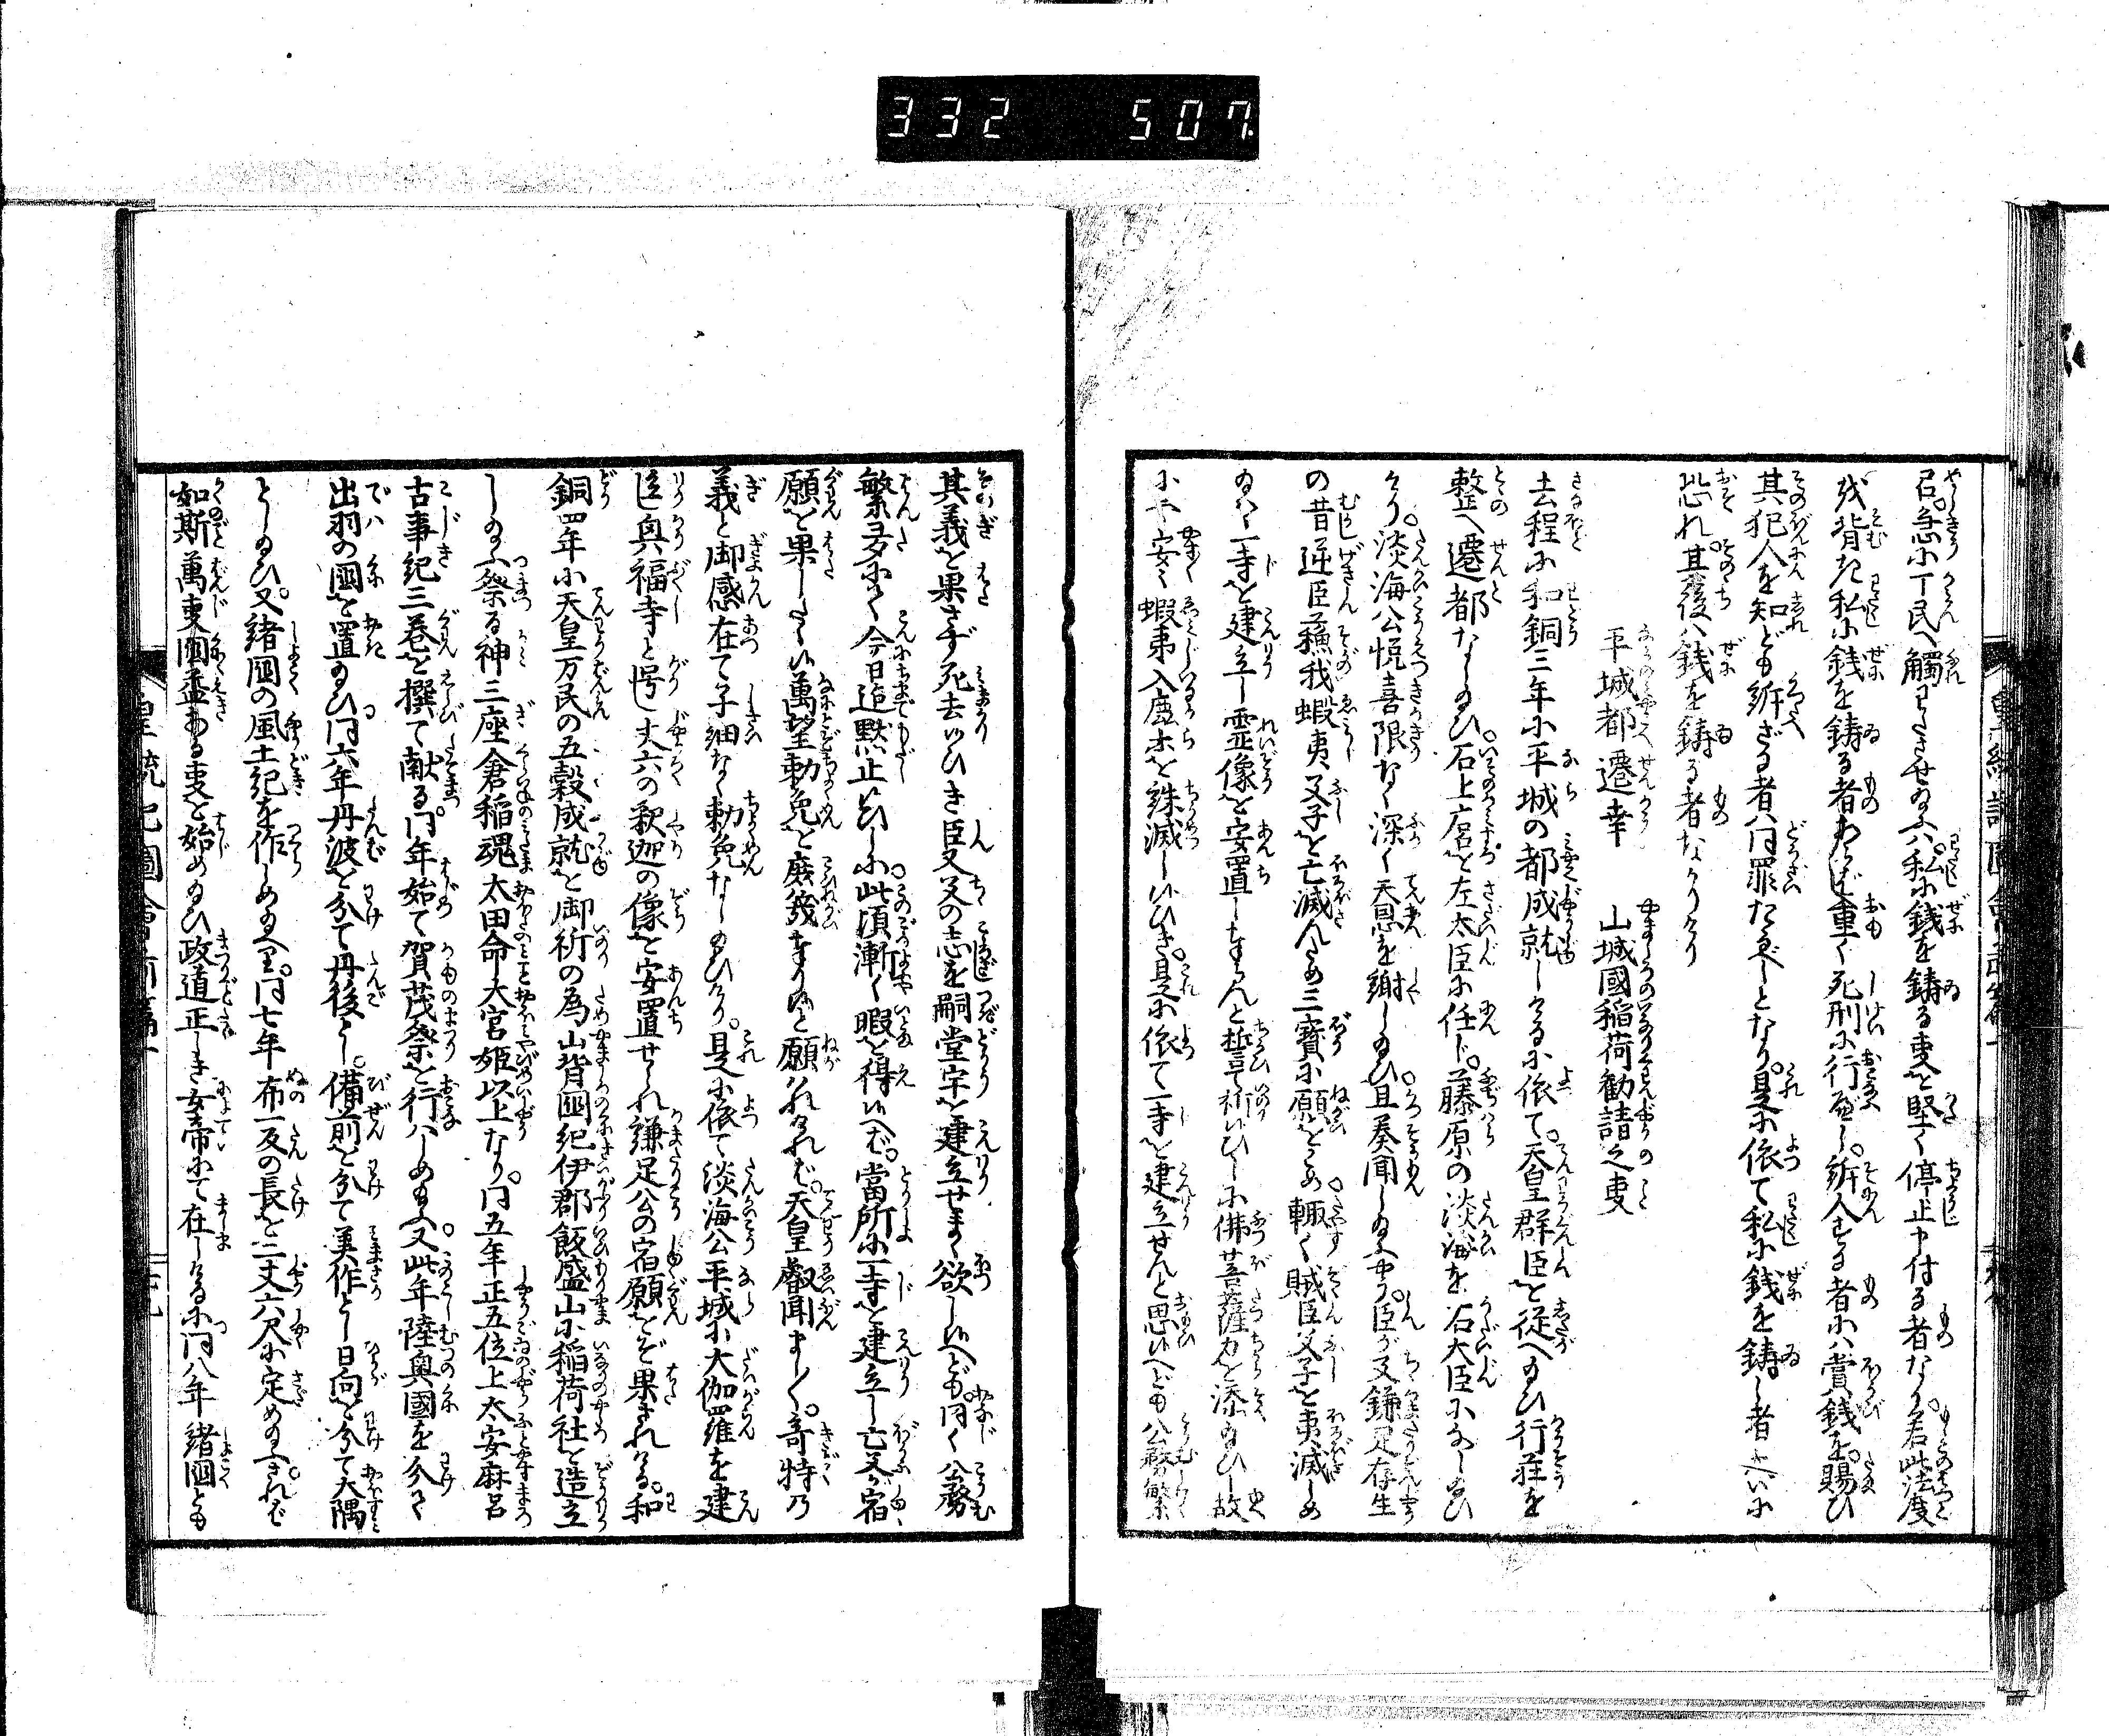 332 507
召。急小丁民へ觸させ給ふハ私に銭を鋳る叓を堅く停止申付る者なり。若此法度
を背き私に銭を鋳る者あらバ重く死刑に行ふべし。訴人する者にハ賞銭を賜ひ
其犯人を知ども訴ざる者ハ同罪たるべしとなり。是に依て私に銭を鋳し者大いに
恐れ其後ハ銭を鋳る者なかりけり
平城都遷幸 山城國稲荷勧請之叓
去程に和銅三年に平城の都成就しけるに依て。天皇群臣を従へ給ひ行粧を
整へ遷都なし給ひ。石上麿を左大臣に任じ。藤原の淡海を右大臣になし給ひ
けり。淡海公悦喜限なく深く天恩を謝し給ひ。且奏聞し給ふやう。臣が父鎌足存生
の昔逆臣蘓我蝦夷父子を亡滅んため三寳に願をこめ。輙く賊臣父子を夷滅しめ
給ハヾ一寺を建立し霊像を安置しまゐらんと誓て祈給ひしに佛菩薩力を添給ひし故
にや安く蝦夷入鹿ホを誅滅し給ひき。是に依て一寺を建立せんと思給へども公務繁
其義を果さず死去給ひき臣又父の志を嗣堂宇を建立せまく欲し給へども。同く公務
繁多にて今日迄黙止給ひしに。此頃漸く暇を得給へバ。當所に一寺を建立し亡父が宿
願を果したく候萬望勅免を庶幾まゐらすと願ハれけれバ。天皇叡聞まし〳〵。奇特乃
義と御感在て子細なく勅免なし給ひけり。是に依て淡海公平城に大伽羅を建
立し興福寺と号し丈六の釈迦の像を安置せられ鎌足公の宿願をぞ果されける。和
銅四年に天皇万民の五穀成就を御祈の為山背国紀伊郡飯盛山に稲荷社を造立
し給ふ祭る神三座倉稲魂太田命大宮姫以上なり。同五年正五位上太安麻呂
古事紀三巻を撰て献る。同年始て賀茂祭を行ハしめ給ふ。又此年陸奥國を分て
出羽の国を置給ひ同六年丹波を分て丹後とし。備前を分て美作とし日向を分て大隅
とし給ひ。又諸国の風土紀を作しめ給へり。同七年布一反の長を二丈六尺に定め給ふ。されバ
如斯萬叓国益ある叓を始め給ひ政道正しき女帝にて在しけるに同八年諸国とも